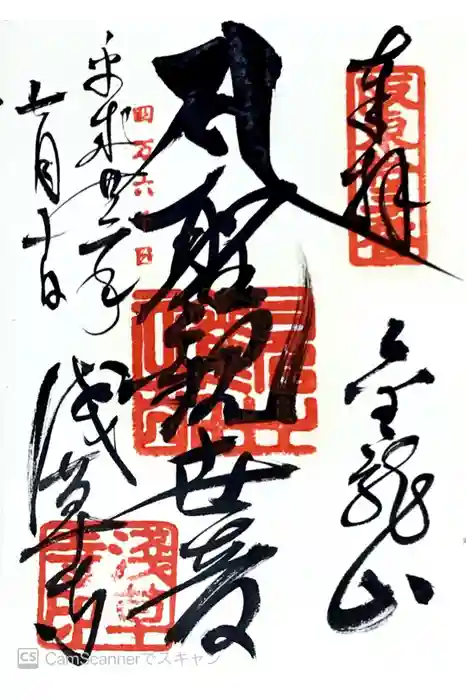 奉拝
金龍山
聖観世音
四万六千日
平成廿二年
七月十日
浅草寺
CS CamScannerでスキャン